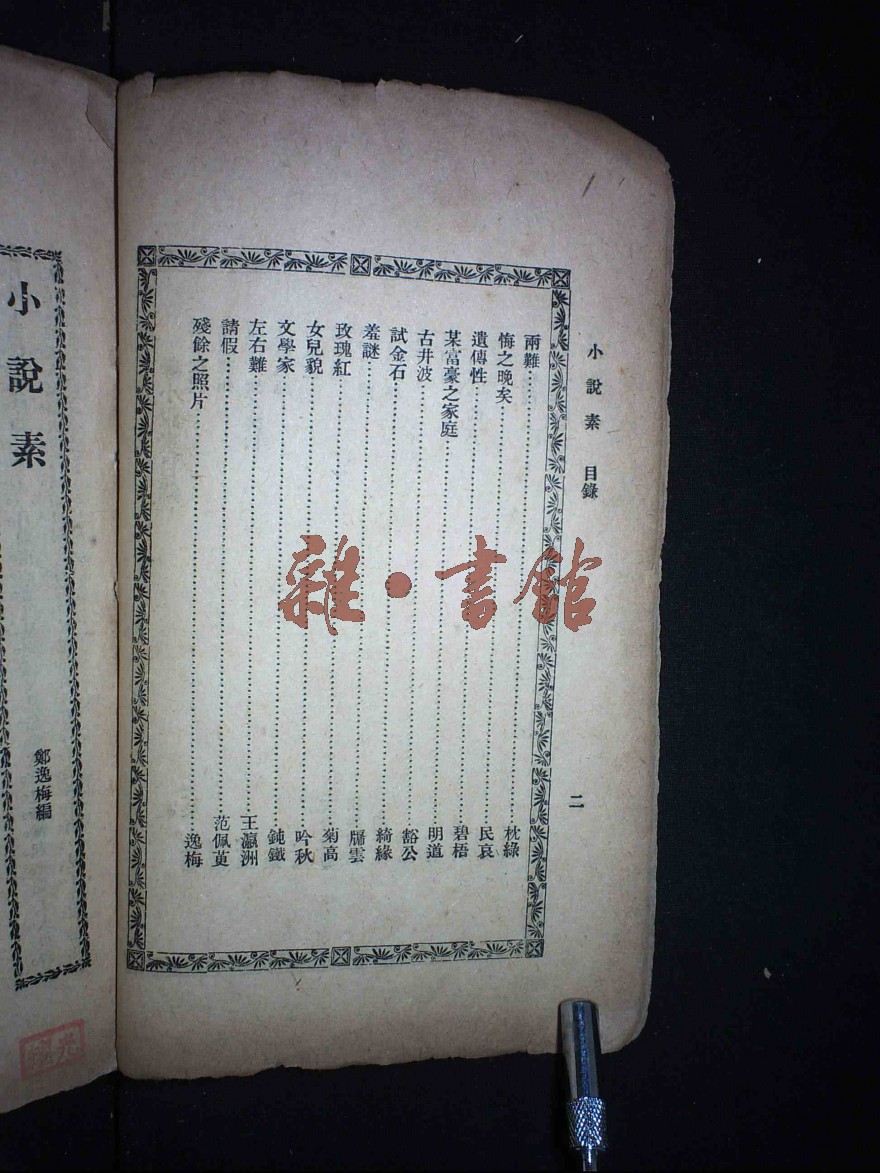 小說素 目錄 二
兩難……枕綠
悔之晚矣……民哀
遺傳性……碧梧
某富豪之家庭……明道
古井波……豁公
試金石……綺緣
羞謎……雲
玫瑰紅……菊高
女兒貌……吟秋
文學家……鈍鐵
左右難……王瀛洲
請假……范佩萸
殘餘之照片……逸梅
小說素
鄭逸梅編
雜·書館